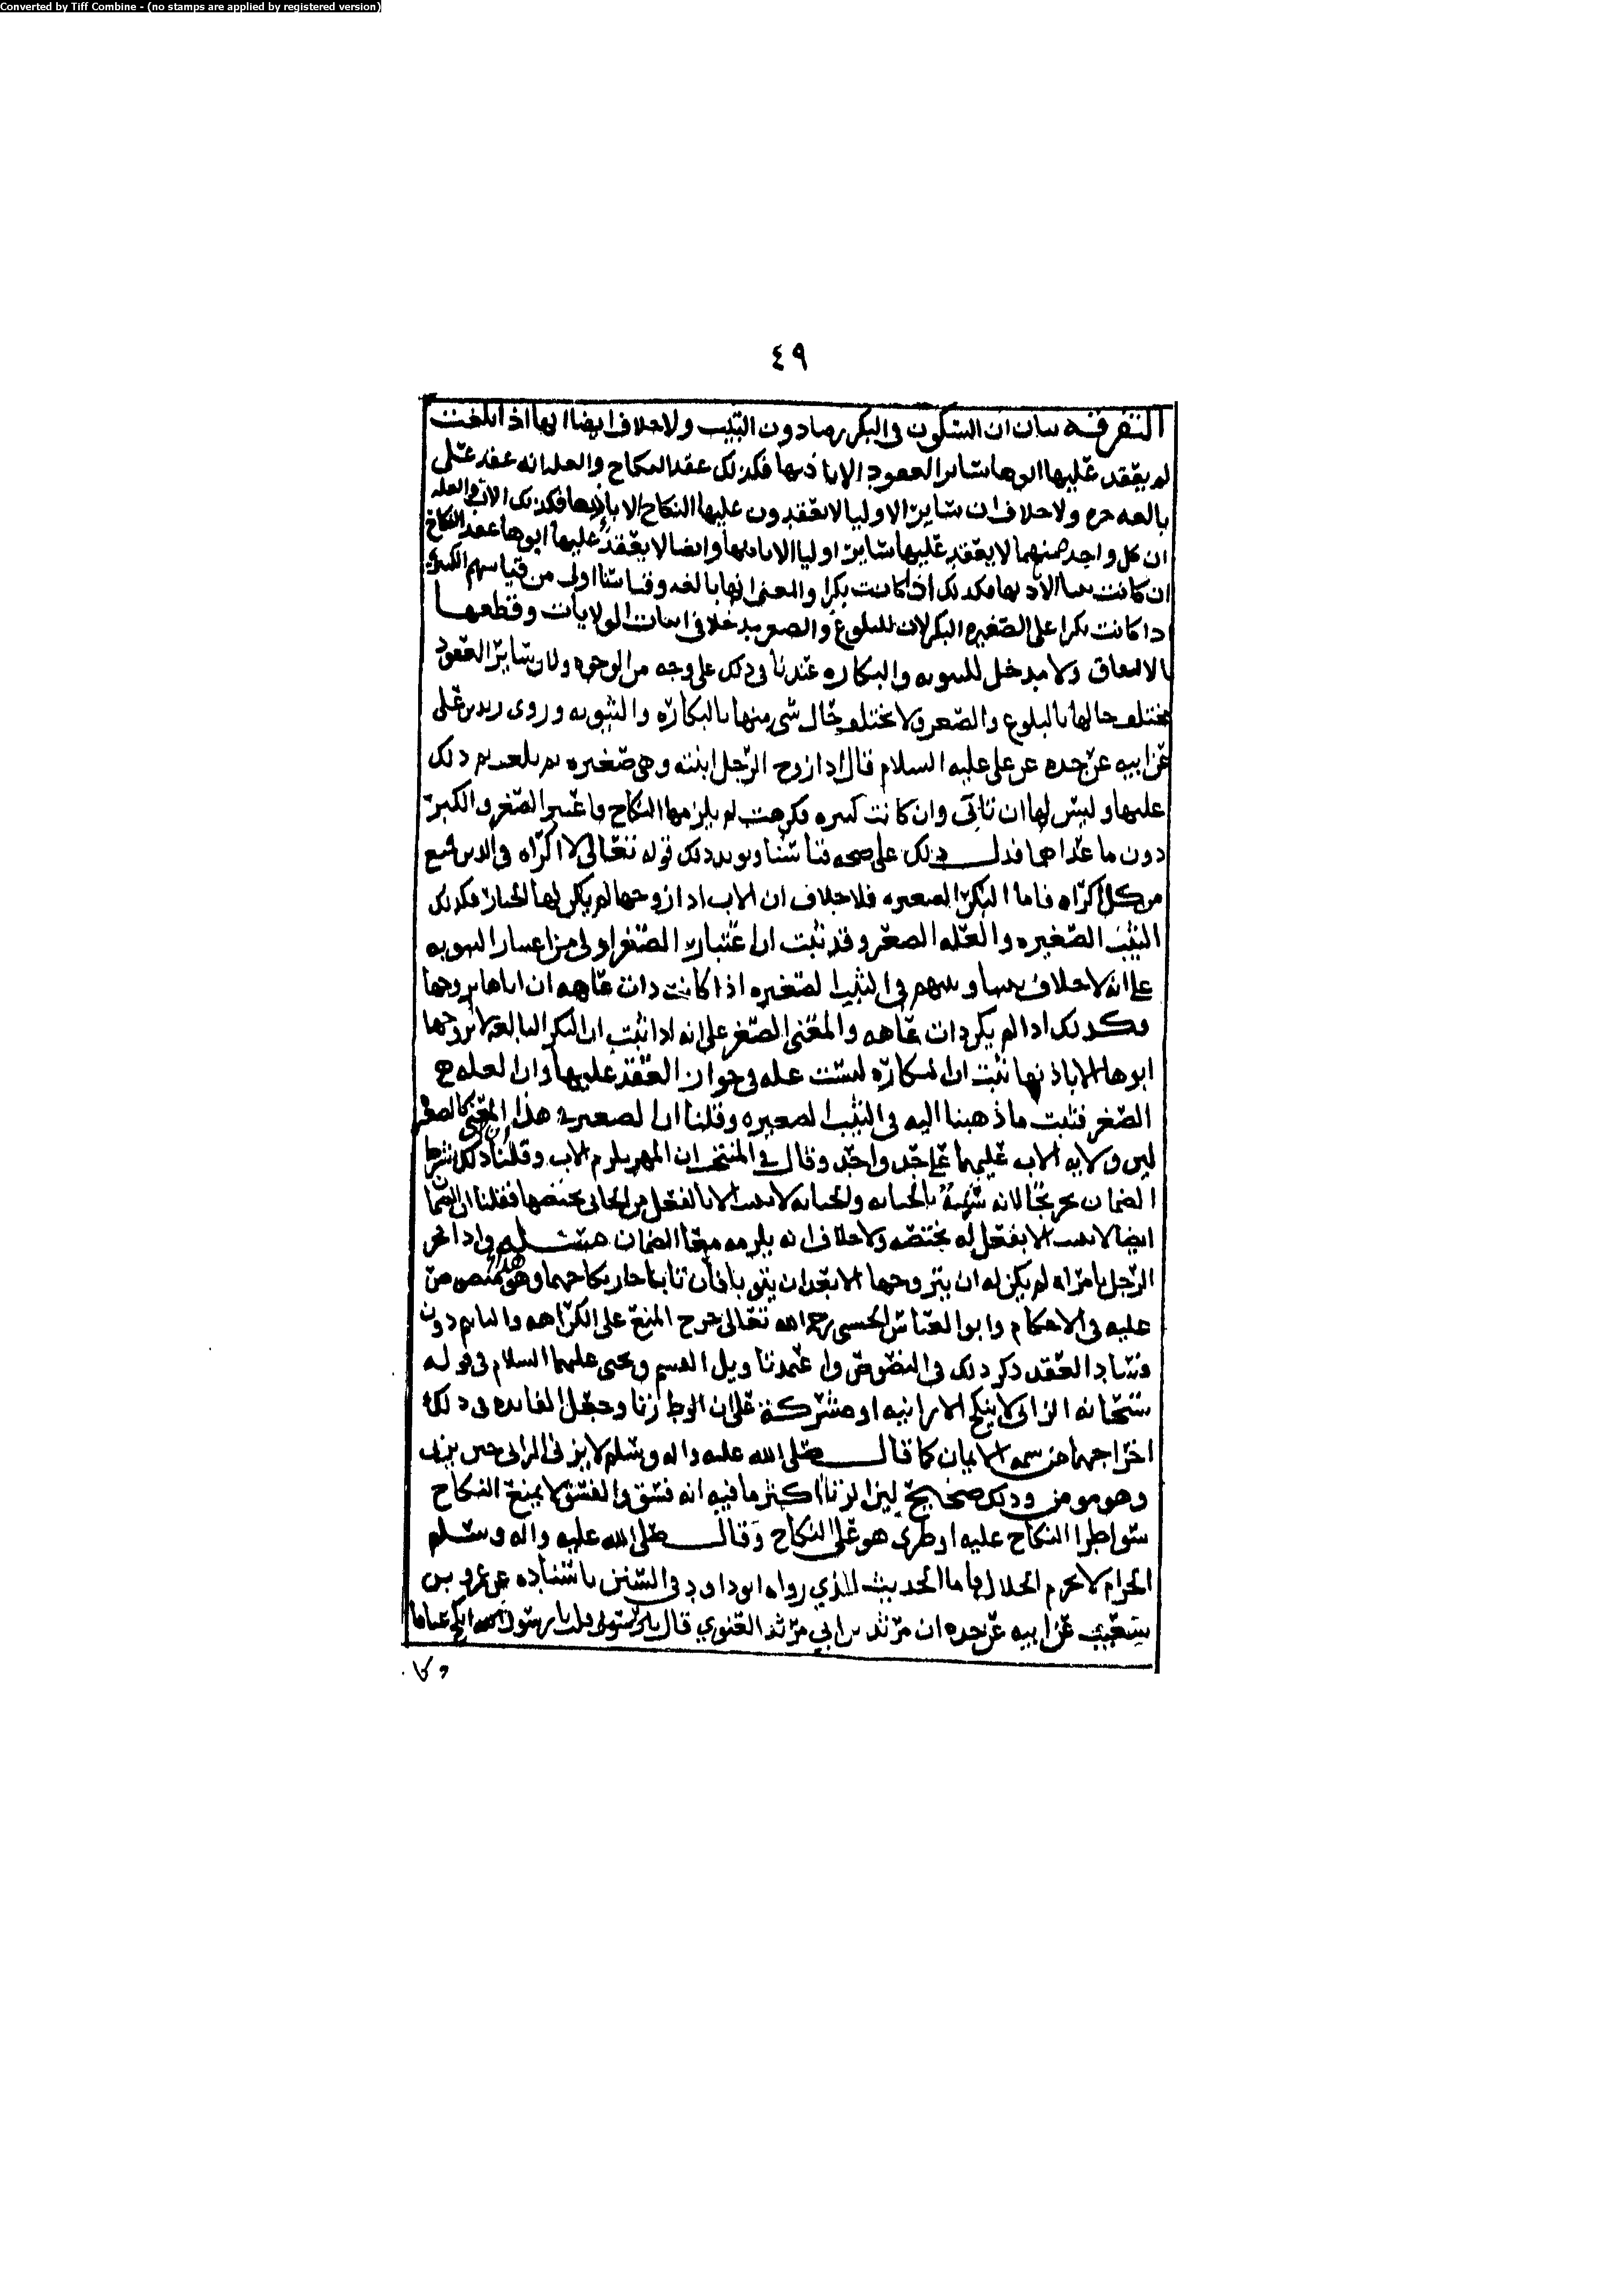 Converted by Tiff Combine - (no stamps are applied by registered version)
٤٩
التفرقه بيان ان السكون في البكر رضا دون الثيب ولا خلاف ايضا انها اذا بلغت
لم يعقد عليها ابوها سائر العقود الا باذنها فكذلك عقد النكاح والعله انه عقد على
بالغه حره ولا خلاف ان سائر الاوليا لا يعقدون عليها النكاح الا باذنها فكذلك الاب والعله
ان كل واحد منهما لا يعقد عليها سائر اوليا الا باذنها وايضا لا يعقد عليها ابوها عقد النكاح
ان كانت ثيبا الا باذنها فكذلك اذا كانت بكرا والمعنى انها بالغه وقياسنا اولى من قياسهم الكبيره
اذا كانت بكرا على الصغيره البكر لان للبلوغ والصغر مدخلا في اثبات الولايات وقطعها
بالاتفاق ولا مدخل للثيوبه والبكاره عندنا في ذلك على وجه من الوجوه ولان سائر العقود
يختلف حالها بالبلوغ والصغر ولا يختلف حال شي منها بالبكاره والثيوبه وروى زيد بن علي
عن ابيه عن جده عن علي عليه السلام قال اذا زوج الرجل ابنته وهي صغيره ثم بلغت تم ذلك
عليها وليس لها ان تابى وان كانت كبيره فكرهت لم يلزمها النكاح فاعتبر الصغر والكبر
دون ما عداهما فدل ذلك على صحه قياسنا ويويد ذلك قوله تعالى لا اكراه في الدين فمنع
من كل اكراه فاما البكر الصغيره فلا خلاف ان الاب اذا زوجها لم يكن لها الخيار فكذلك
الثيب الصغيره والعله الصغر وقد ثبت ان اعتبار الصغر اولى من اعتبار الثيوبه
على انه لا خلاف بيننا وبينهم في الثيب الصغيره اذا كانت ذات عاهه ان اباها يزوجها
فكذلك اذا لم يكن ذات عاهه والمعنى الصغر على انه اذا ثبت ان البكر البالغه لا يزوجها
ابوها الا باذنها ثبت ان البكاره ليست عله في جواز العقد عليها وان العله هي
الصغر فثبت ما ذهبنا اليه في الثيب الصغيره وقلنا ان الصغير في هذا المعنى كالصغيره
لان ولايه الاب عليهما على حد واحد وقال في المنتخب ان المهر يلزم الاب وقلنا ذلك بشرط
الضمان تخريجا لانه شبهه بالجنايه والجنايه لا تثبت الا بالفعل من الجاني يختصها فقلنا ان الضمان
ايضا لا يثبت الا بفعل له يختصه ولا خلاف انه يلزمه معا الضمان مسئله واذا فجر
الرجل بامراه لم يكن له ان يتزوجها الا بعد ان يتوبا فان تابا جاز نكاحهما وهذا منصوص
عليه في الاحكام وابو العباس الحسني رحمه الله تعالى خرج المنع على الكراهه والماثم دون
فساد العقد ذكر ذلك في النصوص واعتمد تاويل القسم ويحيى عليهما السلام في قوله
سبحانه الزاني لا ينكح الا زانيه او مشركة على ان الوطء زنا وجعل الفائده في ذلك
اخراجهما من سمه الايمان كما قال صلى الله عليه واله وسلم لا يزني الزاني حين يزني
وهو مومن وذلك صحيح لان الزنا اكثر ما فيه انه فسق والفسق لا يمنع النكاح
سوا طرا النكاح عليه او طرى هو على النكاح وقال صلى الله عليه واله وسلم
الحرام لا يحرم الحلال فاما الحديث الذي رواه ابو داود في السنن باسناده عن عمرو بن
شعيب عن ابيه عن جده ان مرثد بن ابي مرثد الغنوي قال قلت يا رسول الله انكح عناقا
وكا